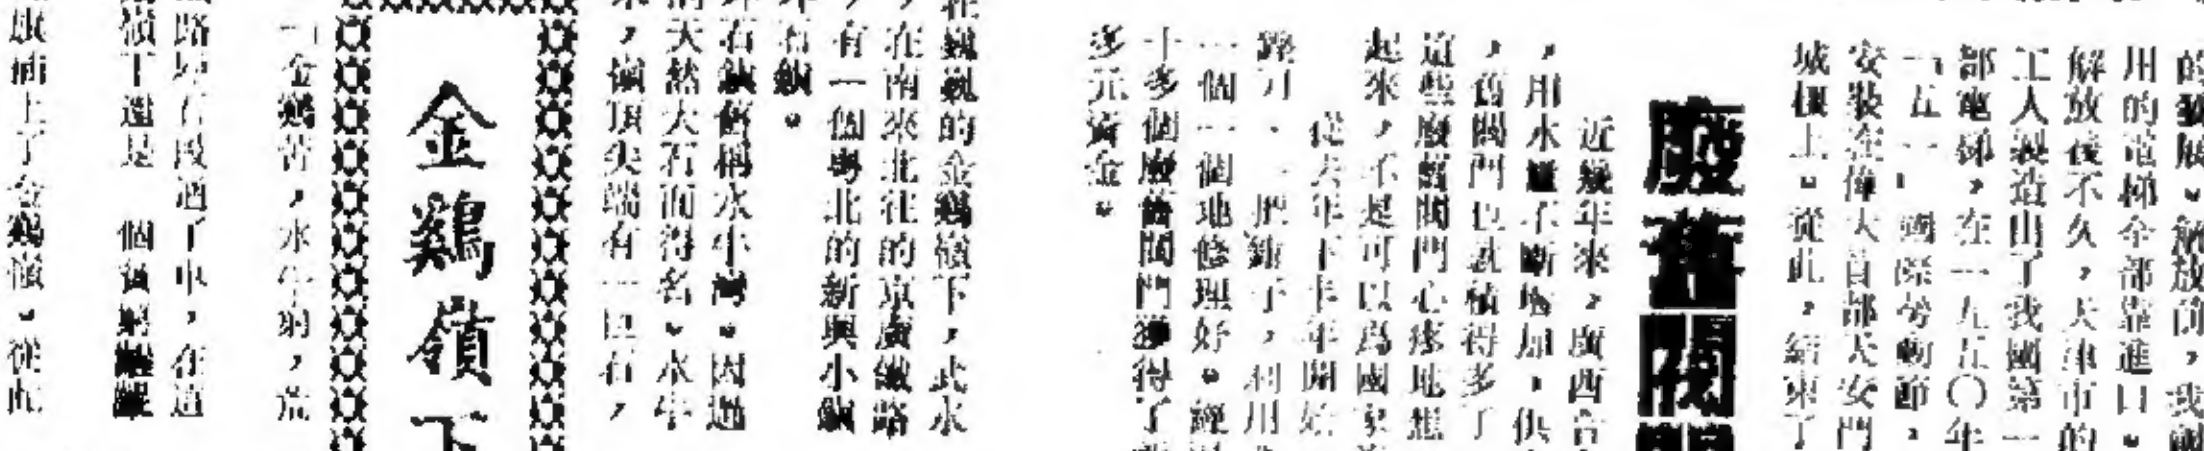 的發展。解放前，我國
用的電梯全部靠進口。
解放後不久，天津市的
工人製造出了我國第一
部電梯，在一九五〇年
「五一」國際勞動節，
安裝在偉大首都天安門
城樓上。從此，結束了
廢舊閥門
近幾年來，廣西合
，用水量不斷增加，供
，舊閥門也就積得多了
這些廢舊閥門心疼地想
起來，不是可以爲國家
從去年下半年開始
一把銼子，利用
一個一個地修理好。經
十多個廢舊閥門獲得了
多元資金。
在巍巍的金鷄嶺下，武水
，在南來北往的京廣鐵路
，有一個粵北的新興小鎮
坪石鎮。
坪石鎮舊稱水牛灣。因過
的天然大石而得名。水牛
，嶺頂尖端有一巨石，
金鷄嶺下
「金鷄苦，水牛窮，荒
路坪石段過了車，在這
嶺下還是一個貧窮
旗插上了金鷄嶺。從此